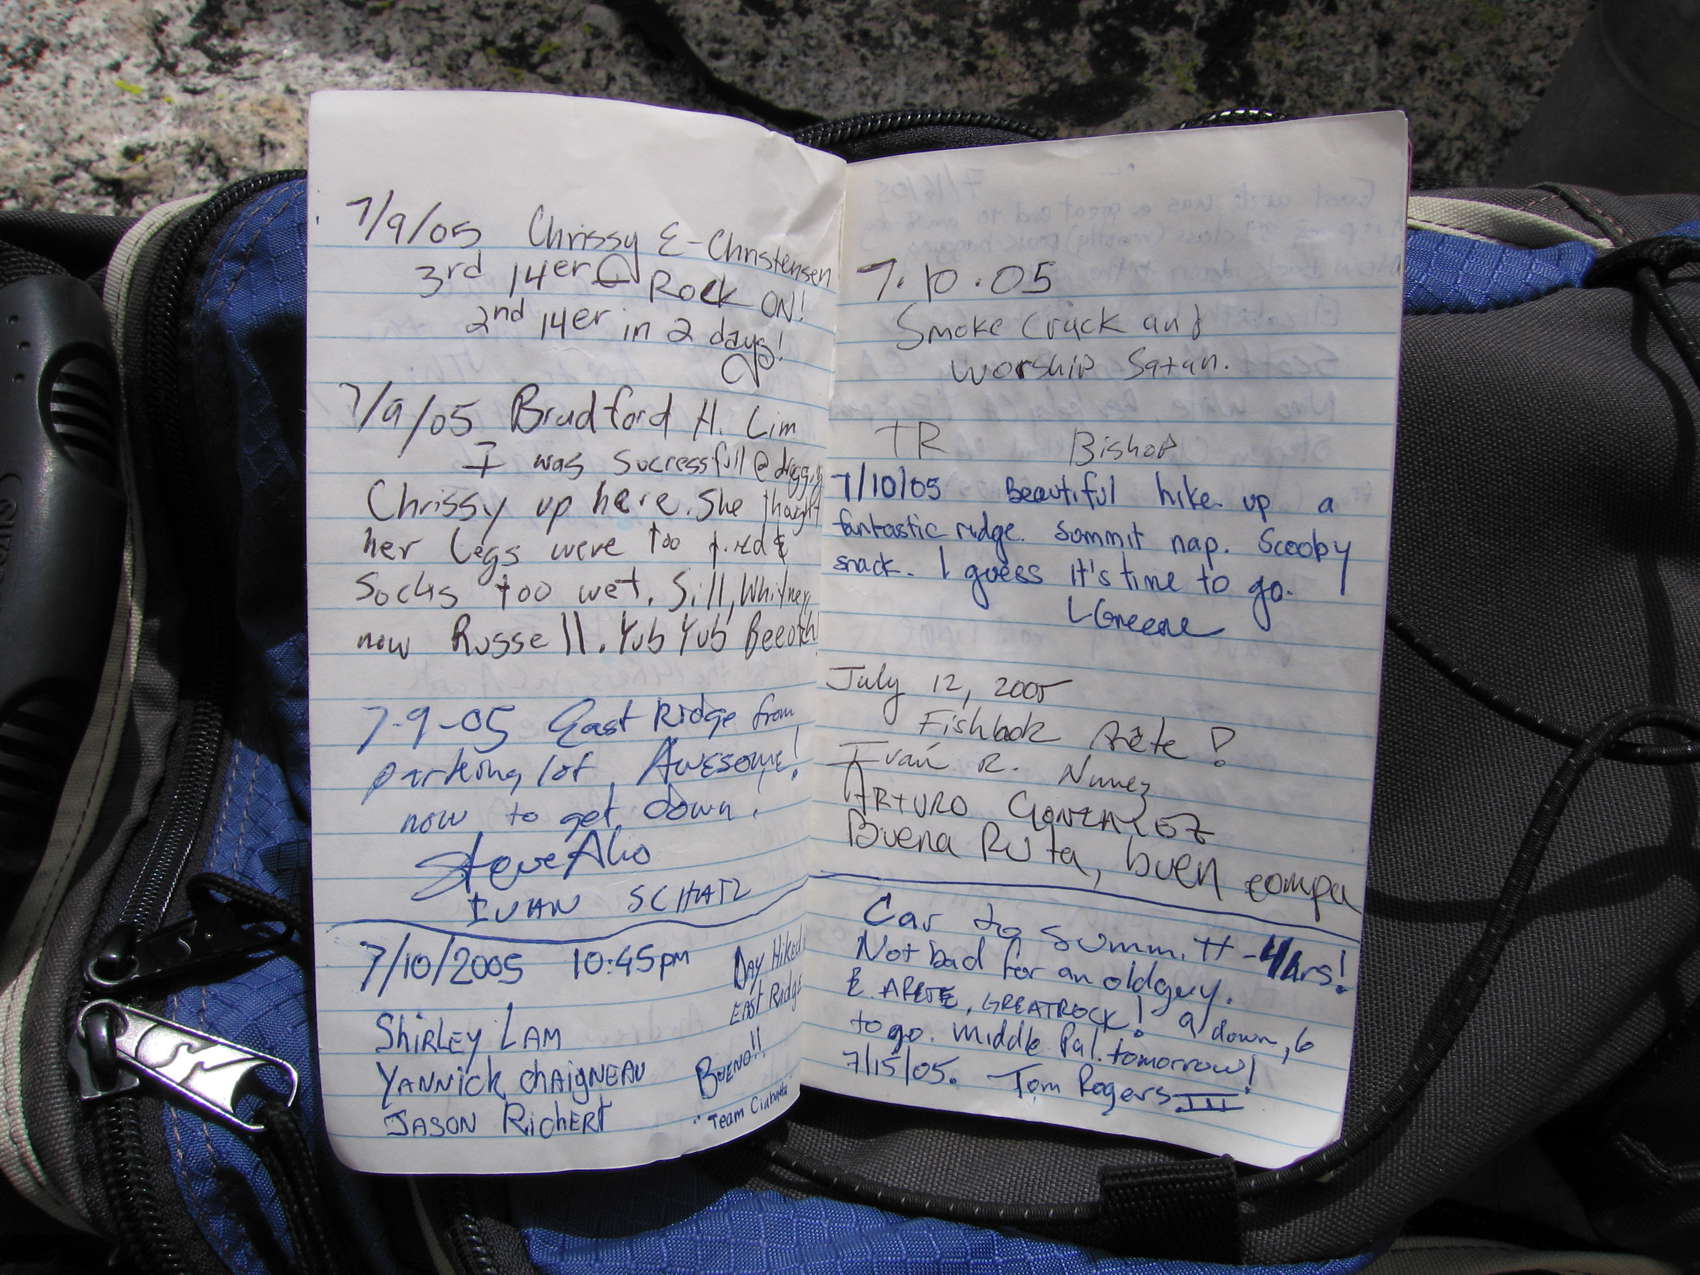 7/9/05 Chrissy E-Christensen
3rd 14er Rock ON!
2nd 14er in 2 days!
7/9/05 Bradford H. Lim
I was successfull @
Chrissy up here. She thought
her legs were too tired &
socks too wet. Sill, Whitney,
now Russell. Yub Yub
7-9-05 East Ridge from
parking lot. Awesome!
now to get down.
Steve
IVAN SCHATZ
7/10/2005 10:45pm
Day Hiked
East Ridge
Bueno!!
SHIRLEY LAM
YANNICK CHAIGNEAU
JASON RICHERT
"Team
7.10.05
Smoke Crack and
worship Satan.
TR Bishop
7/10/05 Beautiful hike up a
fantastic ridge. Summit nap. Scooby
snack. I guess it's time to go.
LGreene
July 12, 2005
Arête!
Iván R. Nunez
ARTURO GONZALEZ
Buena Ruta, buen compa
Car to summitt - 4hrs!
Not bad for an oldguy.
E. ARETE, GREATROCK! 9 down, 6
to go. Middle Pal. tomorrow!
7/15/05. Tom Rogers III